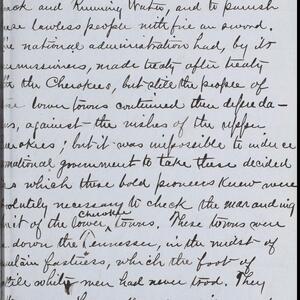 and Running Water, and to punish
lawless people with fire an sword.
national administration had, by its
made treaty after treaty
the Cherokees, but still the people of
lower towns continued their depreda-
against the wishes of the upper
; but it was impossible to induce
national government to take these decided
which these bold pioneers knew were
necessary to check the marauding
of the lower Cherokee towns. These towns were
down the Tennessee, in the midst of
fastness, which the foot of
white men had never trod. They